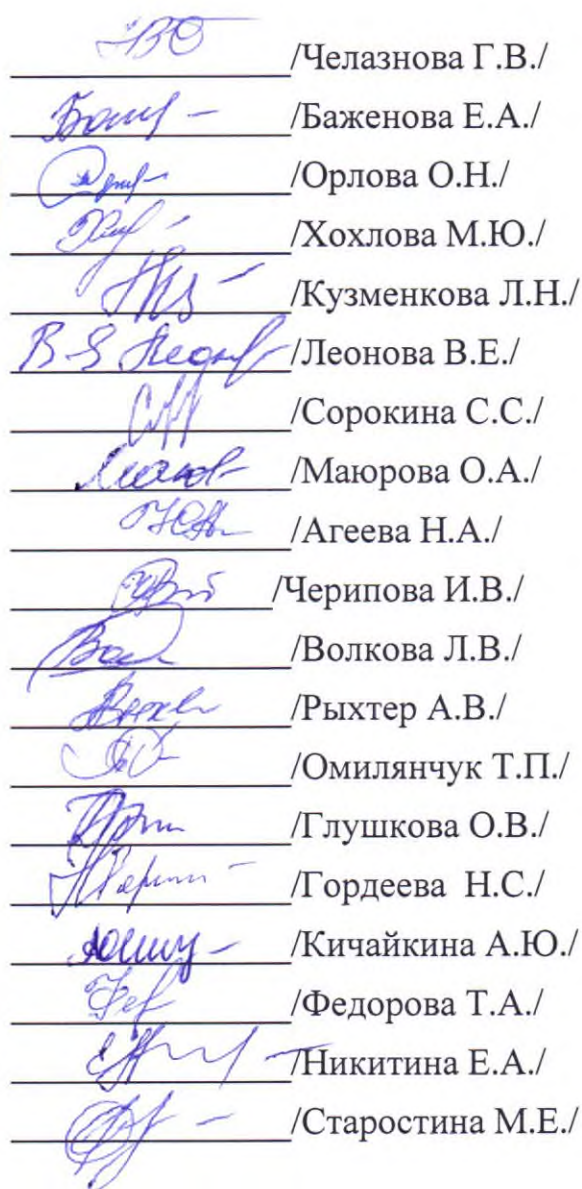 /Челазнова Г.В./
/Баженова Е.А./
/Орлова О.Н./
/Хохлова М.Ю./
/Кузменкова Л.Н./
/Леонова В.Е./
/Сорокина С.С./
/Маюрова О.А./
/Агеева Н.А./
/Черипова И.В./
/Волкова Л.В./
/Рыхтер А.В./
/Омилянчук Т.П./
/Глушкова О.В./
/Гордеева Н.С./
/Кичайкина А.Ю./
/Федорова Т.А./
/Никитина Е.А./
/Старостина М.Е./